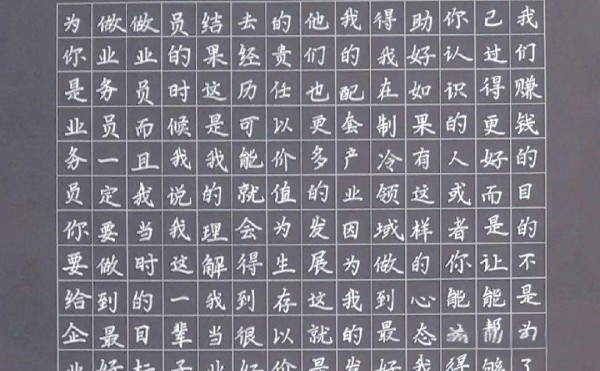 我们赚钱的目的不是为了
己过得更好而是让能帮够
你认识的人或者你能得
助好如果有这样的心态我
得我在制冷领域做到最好
我的配套产业因为我的发
他们也更多的发展这就是
的贵任以价值为生存以价
去经历可能就会得到很好
结果这是我的理解我当业
员的时候我说我这一辈子
做业员而且我当时的目标
做业务员一定要做到最好
为你是业务员你要给企业